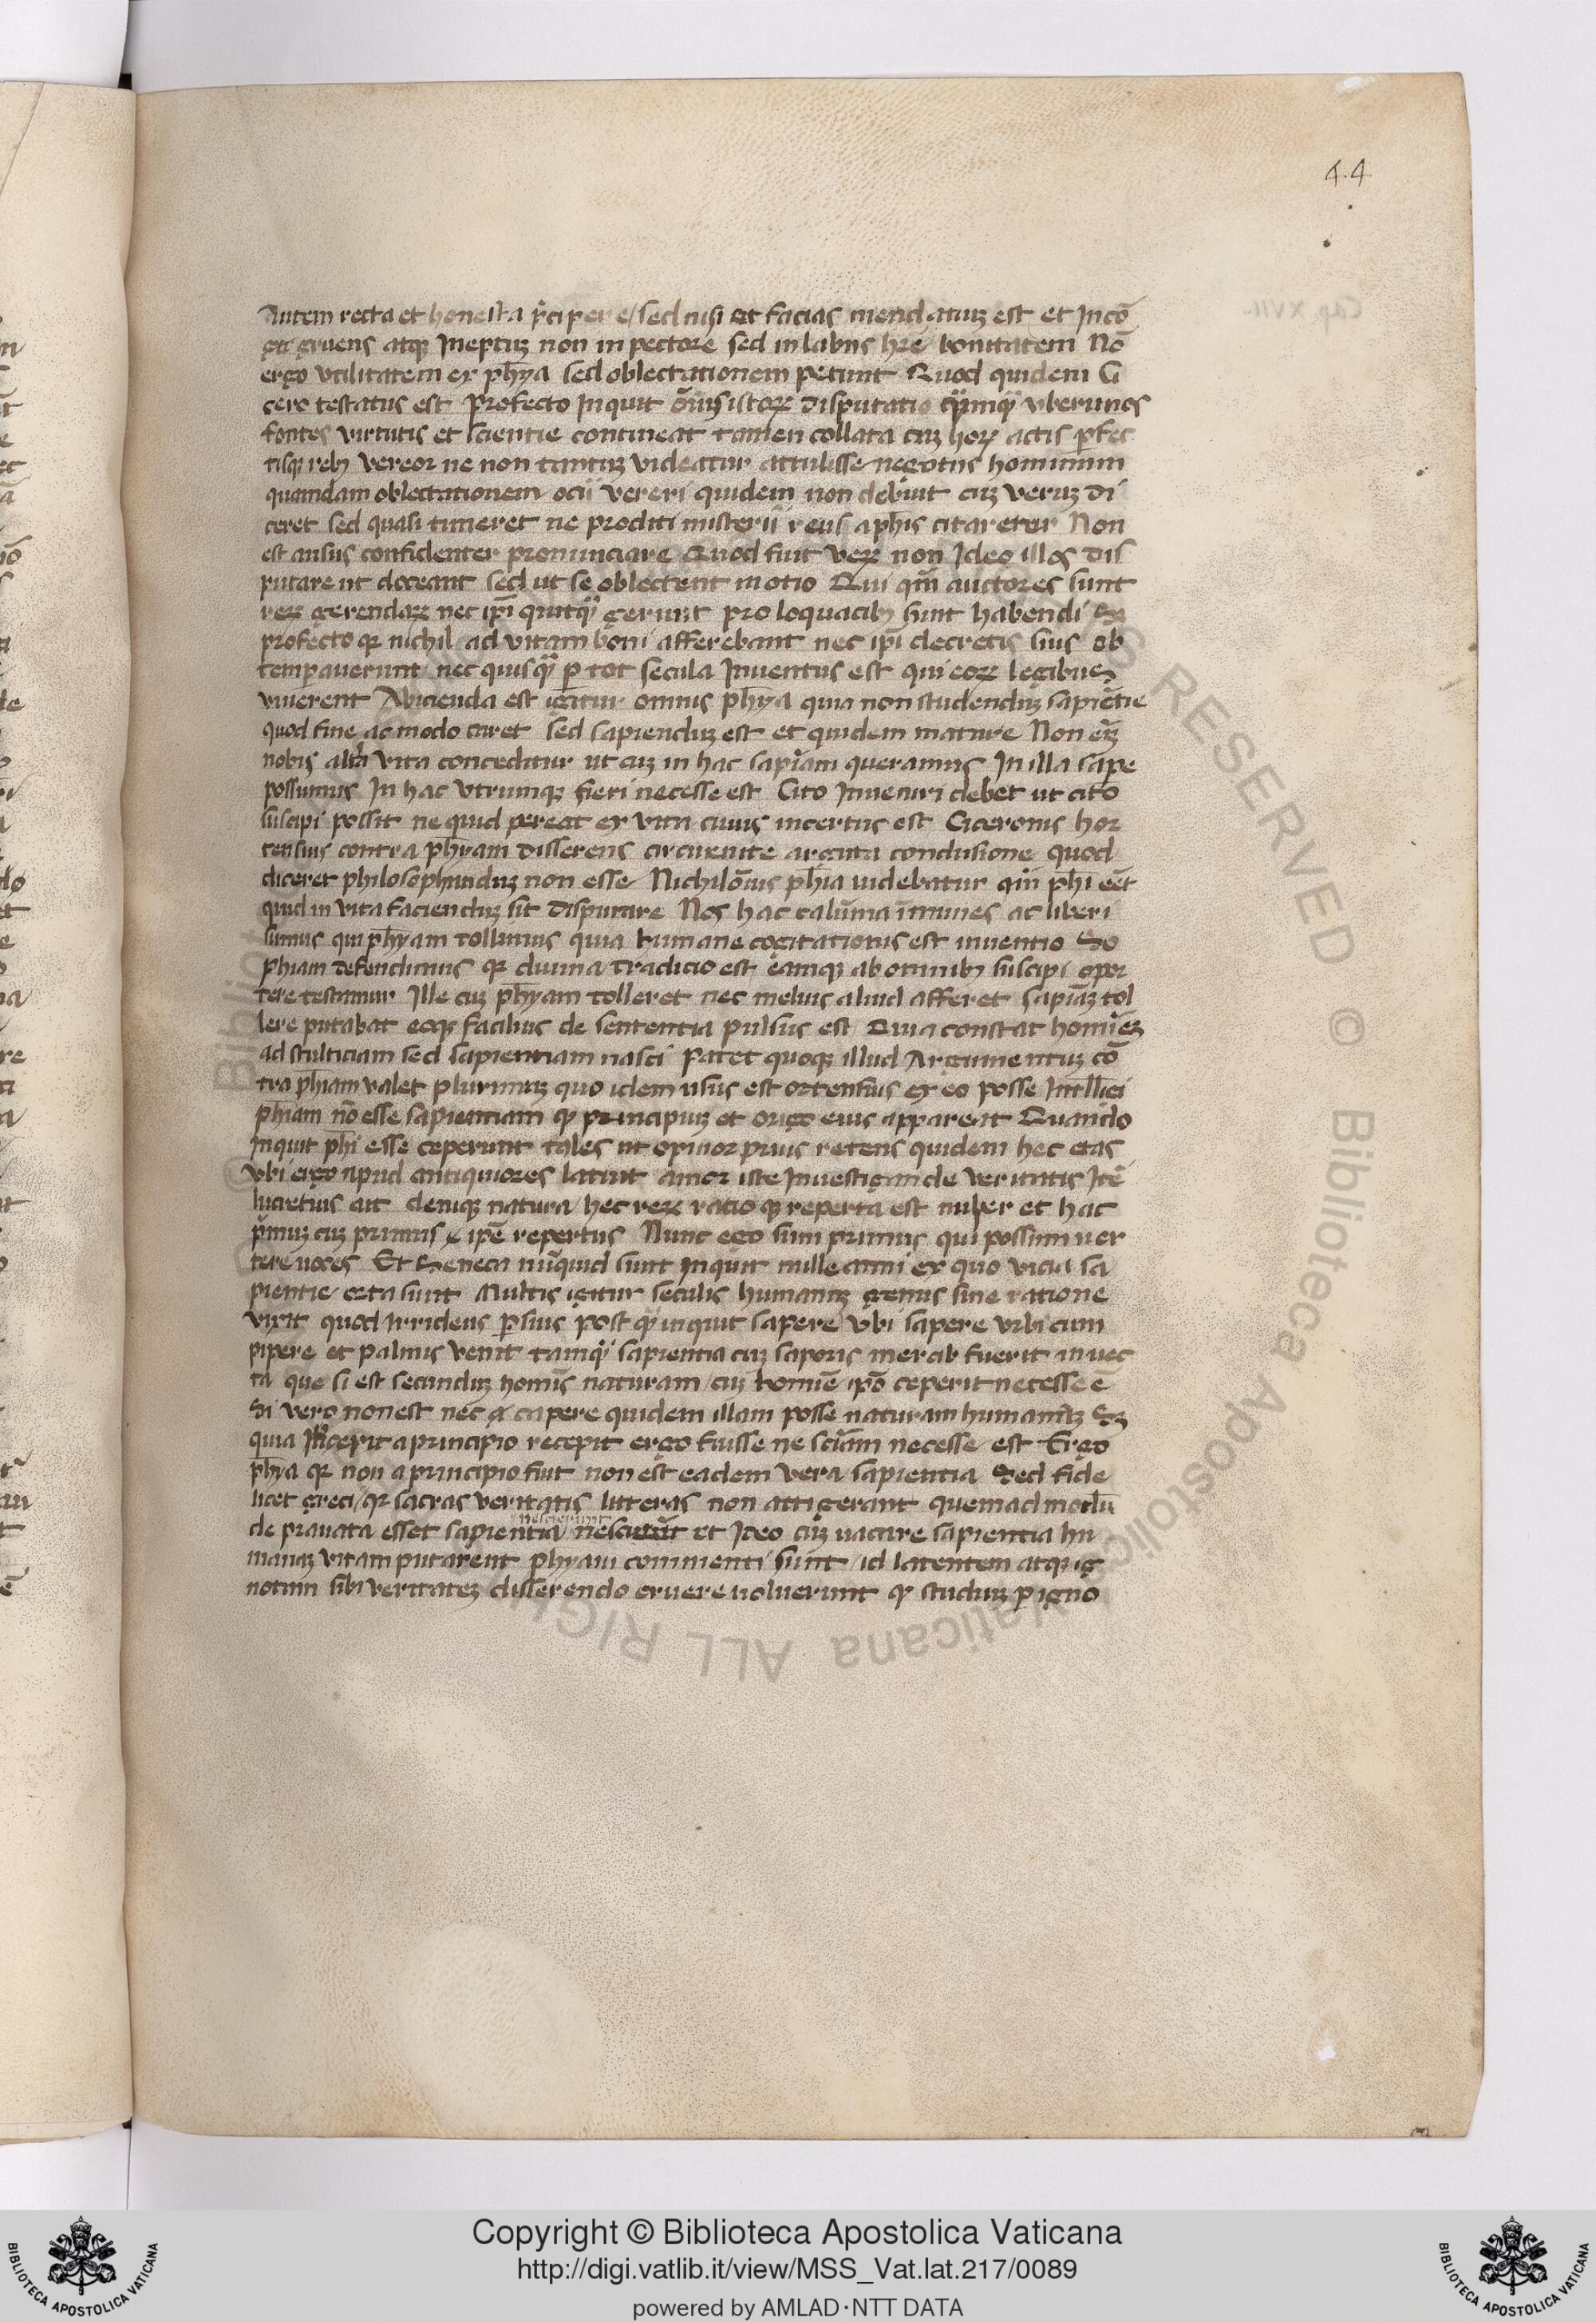 44
Cap. XVII.
Autem recta et honesta p̄cipere / sed nisi et facias mendatiuʒ est et Incō
gruens atqȝ Ineptuʒ non in pectore sed in labiis hr̄e bonitatem Nō
ergo vtilitatem ex ph̄ya sed oblectationem petunt Quod quidem Ci
cero testatus est Profecto Inquit om̄is istoꝝ disputatio qȝmqȝ vberimos
fontes virtutis et scientie contineat tamen collata cuʒ hoꝝ actis ꝑfec
tisqȝ rebȝ vereor ne non tantuʒ videatur attulisse negotiis hominum
quamdam oblectationem ocii vereri quidem non debuit cuʒ veruʒ di
ceret sed quasi timeret ne proditi misterii reus a ph̄is citaretur Non
est ausus confidenter pronunciare Quod fuit veꝝ non Ideo illos dis
putare ut doceant sed ut se oblectent in otio Qui qm̄ auctores sunt
reꝝ gerendaꝝ nec ip̄i quicqȝ gerunt pro loquacibȝ sunt habendi S
profecto qꝛ nichil ad vitam boni afferebant nec ip̄i decretis suis ob
temperauerunt nec quisqȝ ꝑ tot secula Inuentus est qui eoꝝ legibus
viuerent Abicienda est igitur omnis ph̄ya quia non studenduʒ sapiētie
quod fine ac modo caret sed sapienduʒ est et quidem mature Non eīʒ
nobis alta vita conceditur ut cuʒ in hac sapīam queramus In illa sape
possumus In hac vtrumqȝ fieri necesse est Cito Inueniri debet ut cito
suscipi possit ne quid pereat ex vita cuius incertus est Ciceronis hor
tensius contra ph̄yam disserens circuenite arguta conclusione quod
diceret philosophanduʒ non esse Nichilōius ph̄ia uidebatur qm̄ ph̄i eēt
quid in vita faciendum sit disputare Nos hac calūma īmunes ac liberi
sumus qui ph̄yam tollimus quia humane cogitationis est inuentio So
phiam defendimus qꝛ diuina tradicio est eamqȝ ab omnibȝ suscipi opor
tere testamur Ille cuʒ ph̄yam tolleret nec melius aliud afferet sapīaʒ tol
lere putabat eoqȝ facilius de sententia pulsus est Quia constat homīeʒ
ad stulticiam sed sapientiam nasci Patet quoqȝ illud Argumentuʒ cō
tra ph̄iam valet plurimuʒ quo idem usus est ortensius ex eo posse Intll̄igi
ph̄iam nō esse sapientiam qꝫ principiuʒ et origo eius appareat Quando
Inquit ph̄i esse ceperunt tales ut opinor prius retens quidem hec etas
vbi ergo apud antiquiores latuit amor iste Inuestigande veritatis Itē
lucretius ait deniqȝ natura hec reꝝ ratio qȝ reperta est nuper et hac
p̄muʒ cuʒ primis ip̄e repertus Nunc ego sum primus qui possim uer
tere uoces Et Seneca nūquid sunt Inquit mille anni ex quo vicia sa
pientie orta sunt Multis igitur seculis humanuʒ genus sine ratione
vixit quod Irridens ꝑsius post qȝ inquit sapere vbi sapere vrbi cum
pipere et palmis venit tamqȝ sapientia cuʒ saporis mercib fuerit inuec
ta que si est secunduʒ homīs naturam / cuʒ homīe ip̄o ceperit necesse ē
Si vero non est nec capere quidem illam posse naturam humanaʒ Sʒ
quia Incepit a principio recepit ergo fuisse ne sciam necesse est Ergo
ph̄ya qꝛ non a principio fuit non est eadem vera sapientia Sed fide
licet greci / qꝛ sacras veritatis litteras non attigerant quemadmodū
nescierunt
de prauata esset sapientia nesciuerūt et Ideo cuʒ uacare sapientia hu
manaʒ vitam putarent ph̄yam commenti sunt id latentem atqȝ ig
notum sibi veritateʒ disserendo eruere uoluerunt qꝫ studiuʒ ꝑ igno
© Biblioteca Apostolica Vaticana ALL RIGHTS RESERVED
Copyright © Biblioteca Apostolica Vaticana
http://digi.vatlib.it/view/MSS_Vat.lat.217/0089
powered by AMLAD·NTT DATA
BIBLIOTECA APOSTOLICA VATICANA
BIBLIOTECA APOSTOLICA VATICANA